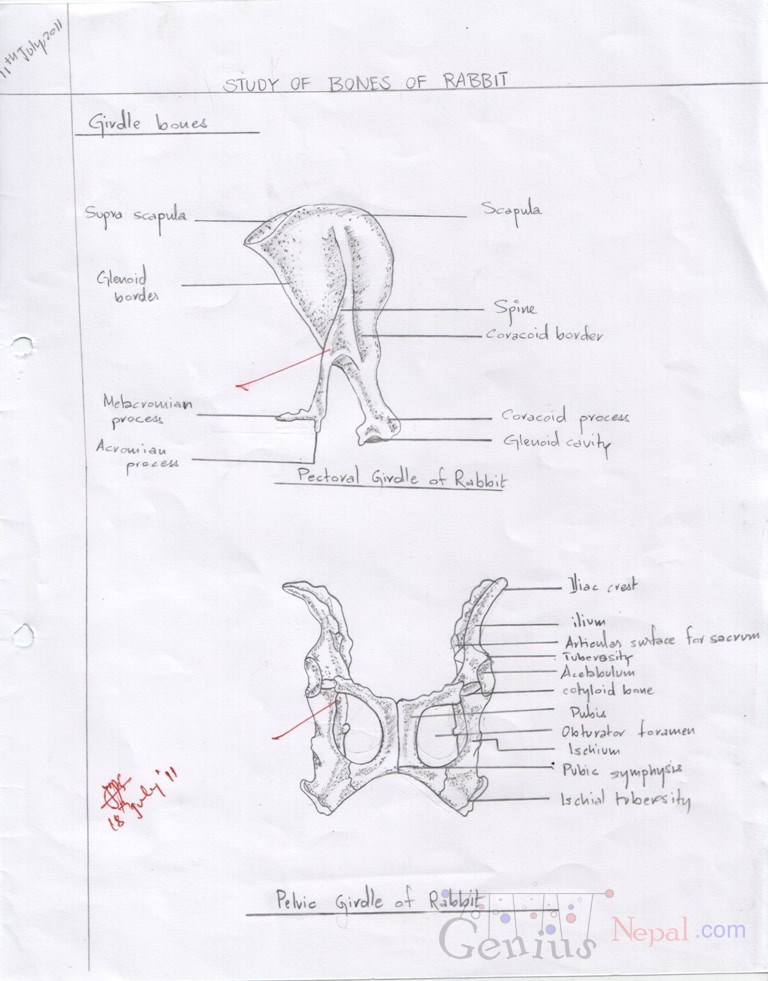 11th July 2011
STUDY OF BONES OF RABBIT
Girdle bones
Supra scapula
Scapula
Glenoid
border
Spine
Coracoid border
Metacromian
process
Coracoid process
Glenoid cavity
Acromian
process
Pectoral Girdle of Rabbit
Iliac crest
ilium
Articular surface for sacrum
Tuberosity
Acetabulum
cotyloid bone
Pubis
Obturator foramen
Ischium
Pubic symphysis
Ischial tuberosity
18 July '11
Pelvic Girdle of Rabbit
Genius Nepal.com